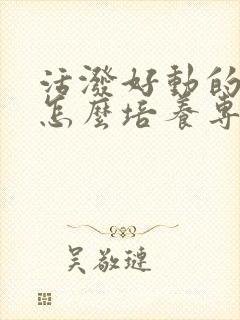 活潑好動的
怎麼培養專
吴敬璉